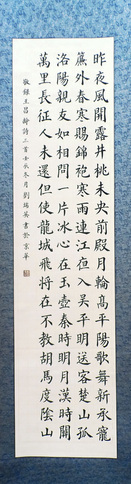 昨夜風開露井桃未央前殿月輪高平陽歌舞新承寵
簾外春寒賜錦袍寒雨連江夜入吳平明送客楚山孤
洛陽親友如相問一片冰心在玉壺秦時明月漢時關
萬里長征人未還但使龍城飛將在不教胡馬度陰山
敬錄王昌齡詩三首冬月劉英書於京華